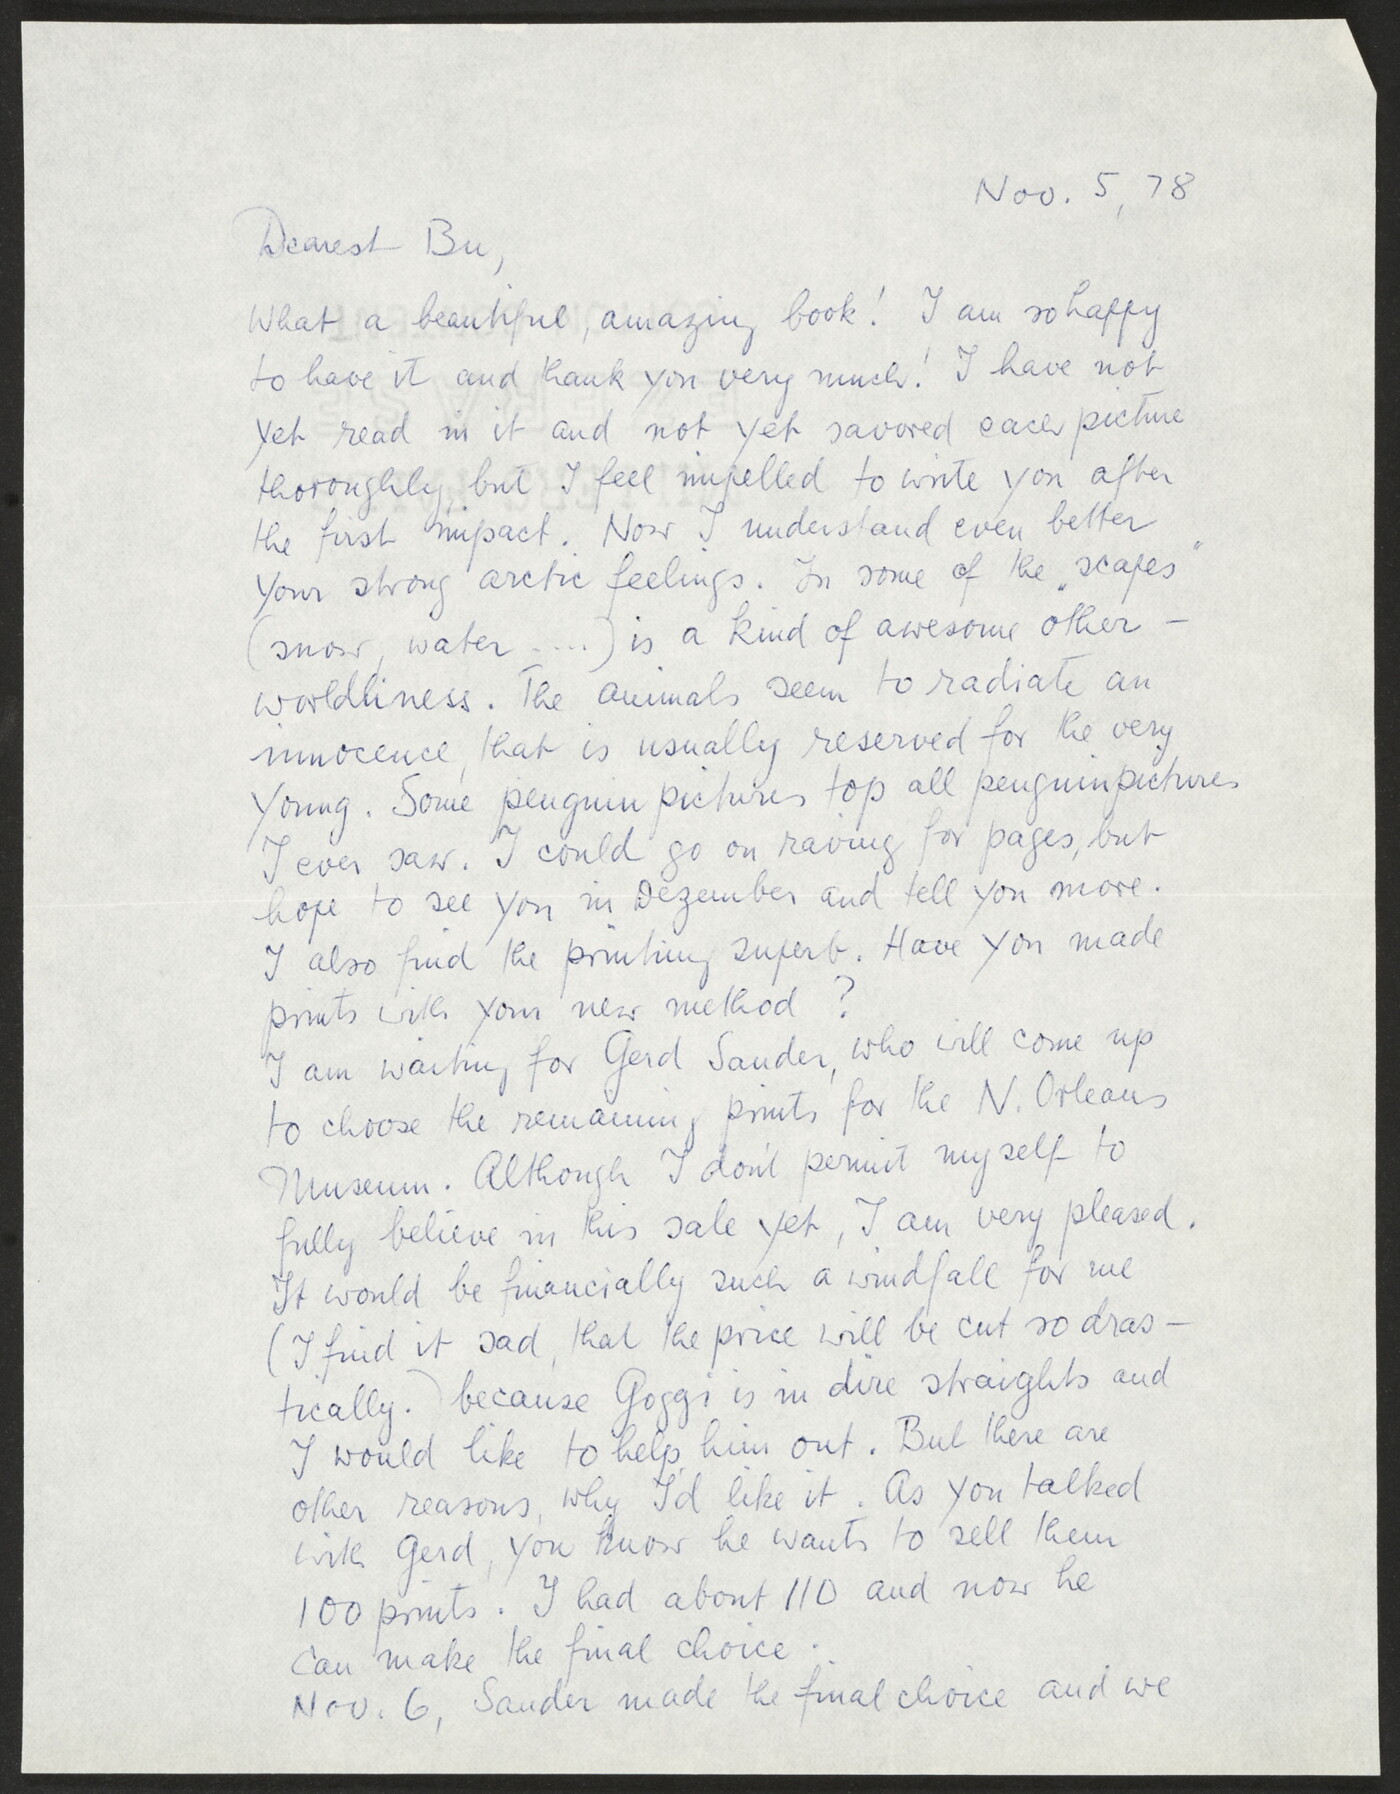 Nov. 5, 78
Dearest Bu,
What a beautiful, amazing book! I am so happy
to have it and thank you very much! I have not
yet read in it and not yet savored each picture
thoroughly, but I feel impelled to write you after
the first impact. Now I understand even better
your strong arctic feelings. In some of the „scapes"
(snow, water ....) is a kind of awesome other-
worldliness. The animals seem to radiate an
innocence, that is usually reserved for the very
young. Some penguin pictures top all penguinpictures
I ever saw. I could go on raving for pages, but
hope to see you in Dezember and tell you more.
I also find the printing superb. Have you made
prints with your new method ?
I am waiting for Gerd Sander, who will come up
to choose the remaining prints for the N. Orleans
Museum. Although I don't permit myself to
fully believe in this sale yet, I am very pleased.
It would be financially such a windfall for me
(I find it sad, that the price will be cut so dras-
tically.) because Goggi is in dire straights and
I would like to help him out. But there are
other reasons, why I'd like it. As you talked
with Gerd, you know he wants to sell them
100 prints. I had about 110 and now he
can make the final choice.
Nov. 6, Sander made the final choice and we